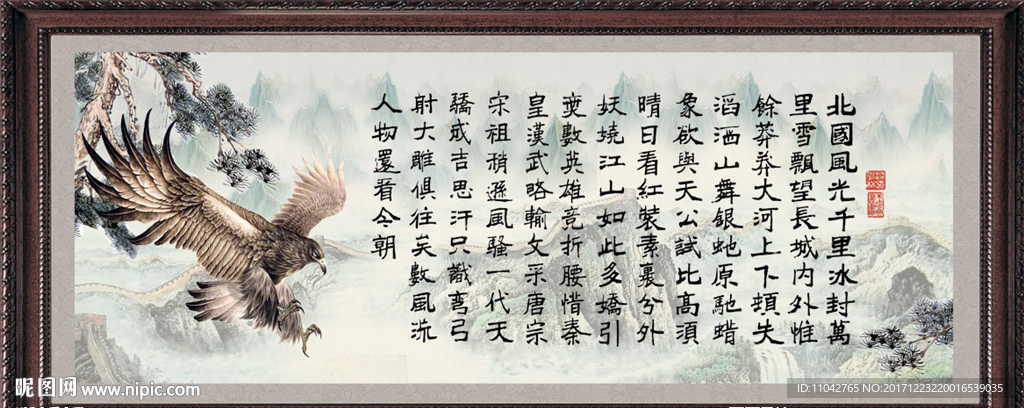 北國風光千里冰封萬
里雪飄望長城內外惟
餘莽莽大河上下頓失
滔滔山舞銀蛇原馳蜡
象欲與天公試比高須
晴日看紅裝素裹兮外
妖嬈江山如此多嬌引
無數英雄竞折腰惜秦
皇漢武略輸文采唐宗
宋祖稍遜風騷一代天
驕成吉思汗只識弯弓
射大雕俱往矣數風流
人物還看今朝
昵图网 www.nipic.com
ID:11042765 NO:20171223220016539035